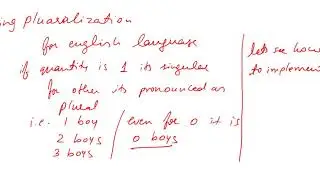 ing pluaralization
for english language
if quantity is 1 its singular
for other its pronounced as
plural
i.e. 1 boy
2 boys
3 boys
even for 0 it is
0 boys
lets see how
to implement